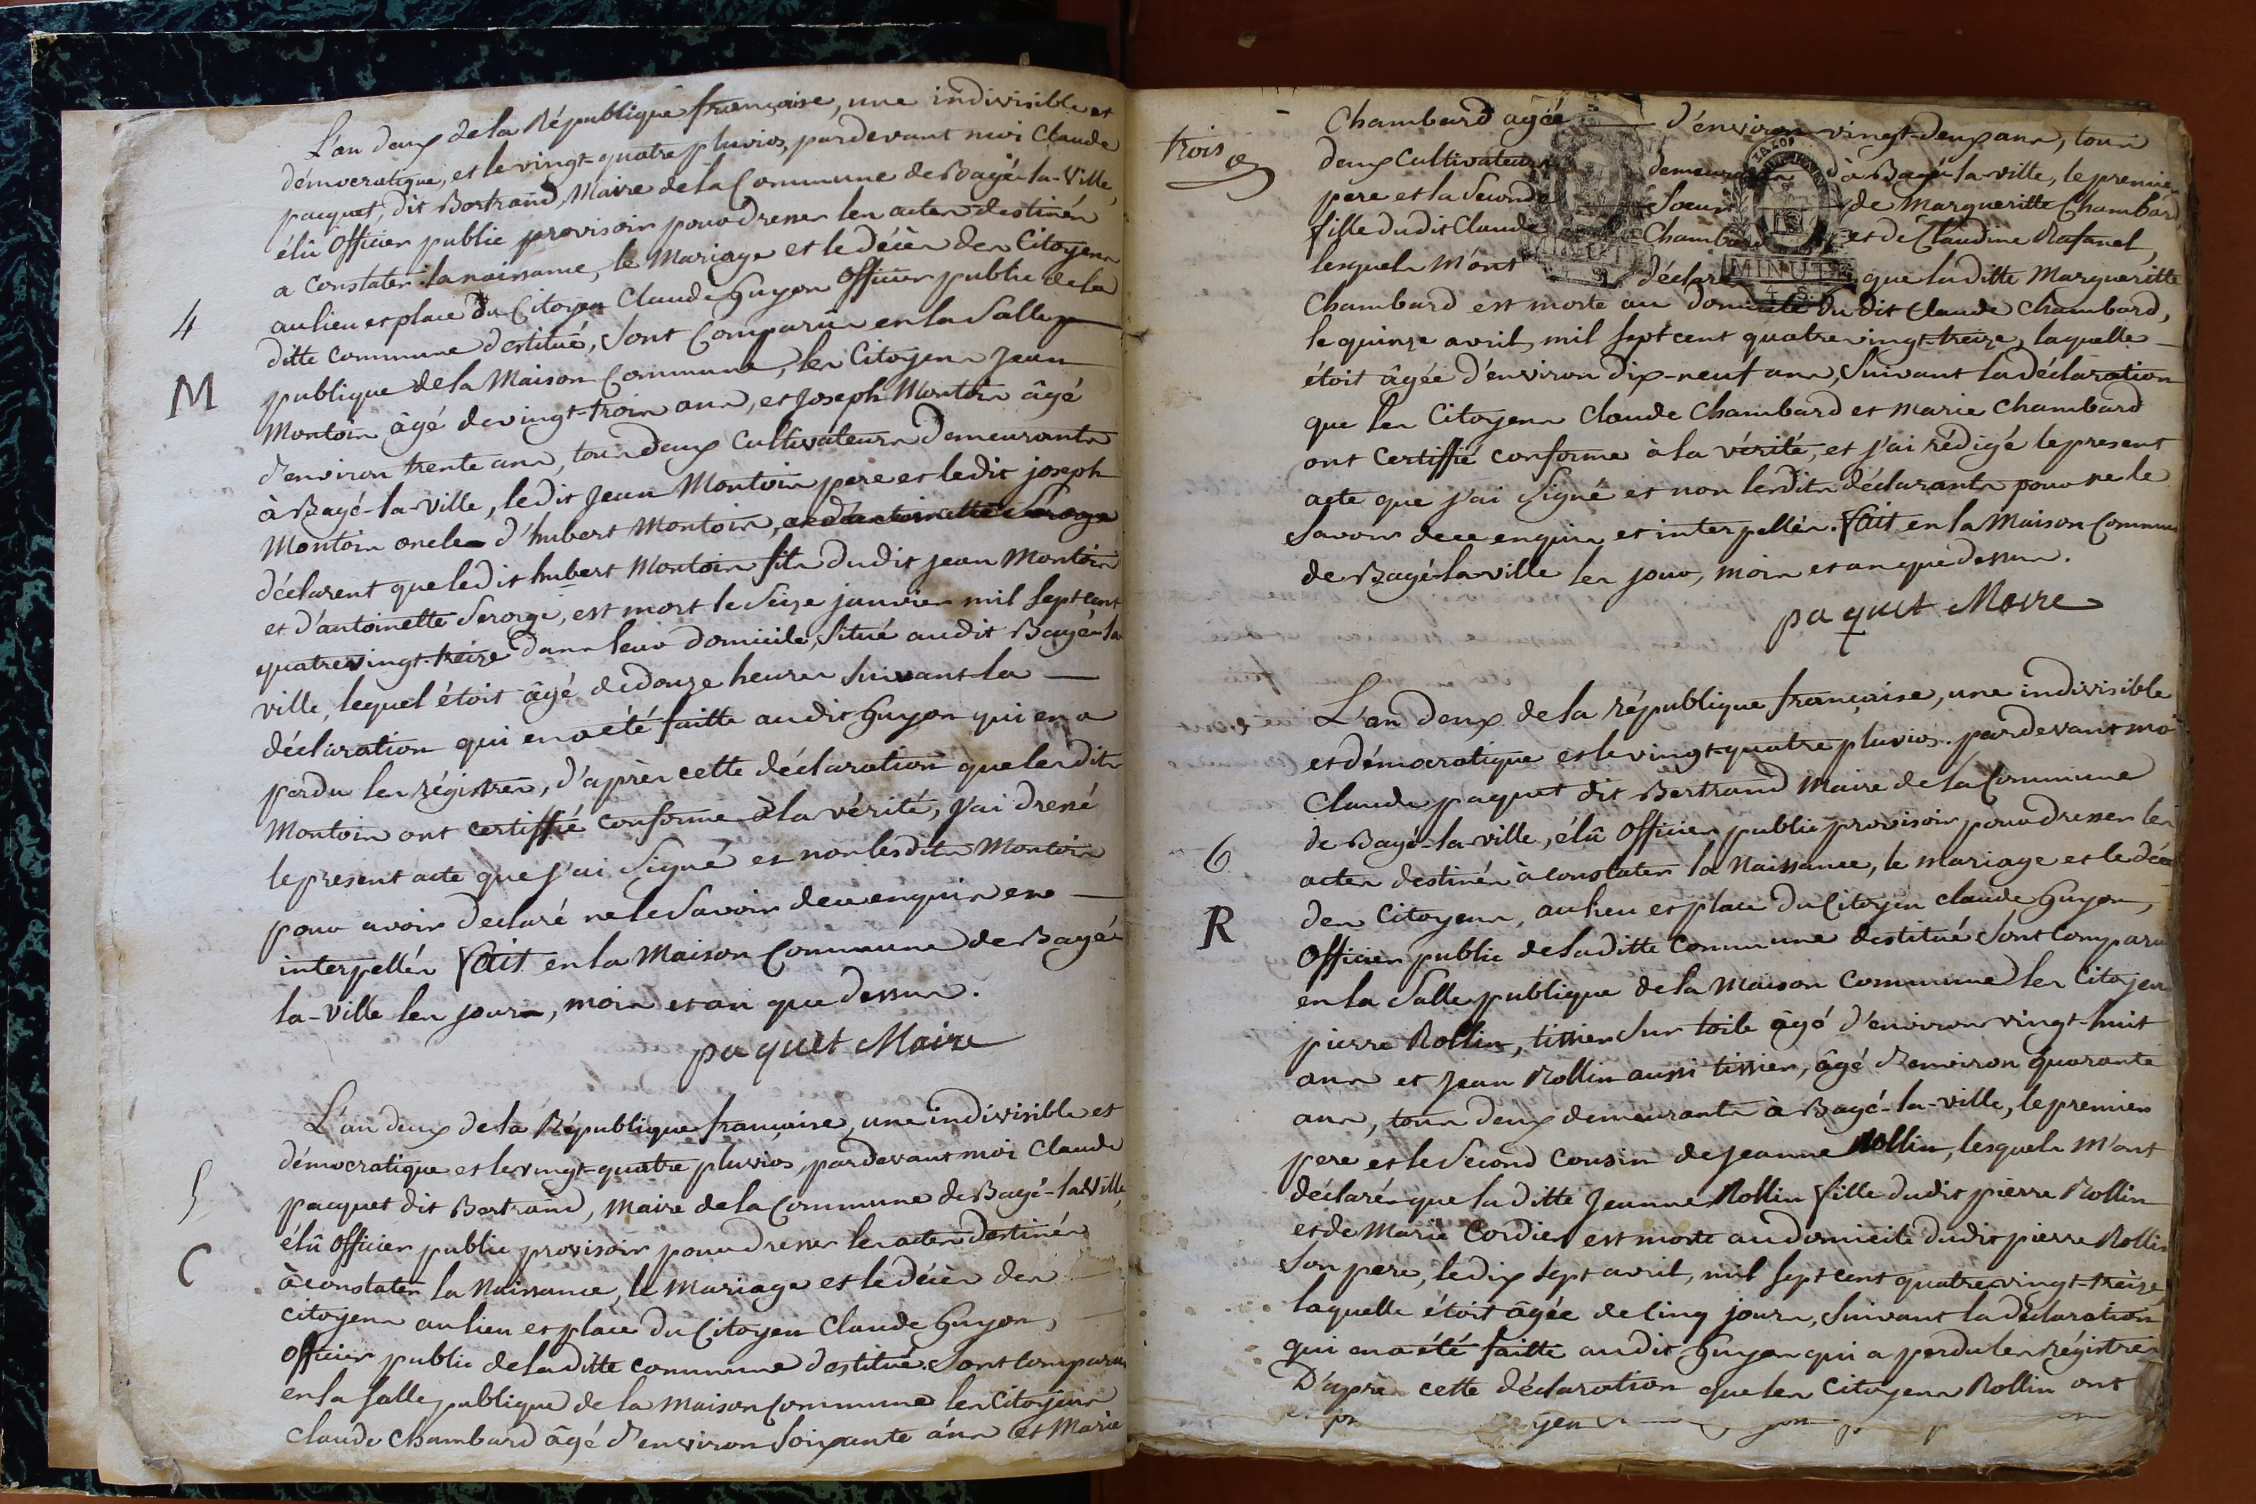 L'an deux de la République française, une indivisible et
démocratique, et le vingt-quatre pluvios, pardevant moi Claude
pacquet, dit Bertrand, Maire de la Commune de Bagé-la-Ville,
élû Officier public provisoir pour dresser les actes destinés
a constater la naissance, le Mariage et le décès des Citoyens
au lieu et place du Citoyen Claude Guyon Officier public de la
4
ditte commune destitué, sont Comparûs en la Salle
M
publique de la Maison Commune, les Citoyens Jean
Montoin âgé de vingt-trois ans, et Joseph Montoin âgé
d'environ trente ans, tous deux Cultivateurs demeurants
à Bagé-la-Ville, ledit Jean Montoin pere et ledit joseph
Montoin oncle d'hubert Montoin,
déclarent que ledit hubert Montoin fils dudit Jean Montoin
et d'antoinette Seroge, est mort le Seize janvier mil sept cent
quatrevingt-treize dans leur domicile, situé audit Bagé-la
ville, lequel étoit âgé de douze heures suivant la
déclaration qui en a été faitte audit Guyon qui en a
perdu les régistres, d'après cette déclaration que lesdits
Montoin ont certiffié conforme à la vérité, j'ai dressé
le present acte que j'ai Signé et non lesdits Montoin
pour avoir declaré ne le Savoir de ce enquis et
interpellés fait en la Maison Commune de Bagé-
la-ville les jours, mois et an que dessus.
paquet Maire
L'an deux de la République française, une indivisible et
démocratique et le vingt-quatre pluvios, pardevant moi Claude
5
pacquet dit Bertrand, Maire de la Commune de Bagé-la-Ville,
élû Officier public provisoir pour dresser les actes destinés
C
à constater la Naissance, le Mariage et le décès des
citoyens au lieu et place du Citoyen Claude Guyon,
Officier public de la ditte commune destitué. Sont comparus
en la salle publique de la Maison Commune les Citoyens
Claude Chambard âgé d'environ Soixante ans et Marie
trois
Chambard agée d'environ vingt-deux ans, tous
deux Cultivateurs demeurants à Bagé-la-ville, le premier
pere et la Seconde Soeur de Margueritte Chambard
fille dudit Claude Chambard et de Claudine Rafanel,
lesquels m'ont déclaré que la ditte Margueritte
MINUTE
Chambard est morte au domicile du dit Claude Chambard,
le quinze avril mil sept cent quatre vingt-treize, laquelle
étoit âgée d'environ dix-neuf ans, Suivant la déclaration
que les Citoyens Claude Chambard et Marie Chambard
ont certiffié conforme à la vérité, et j'ai rédigé le present
acte que j'ai Signé et non lesdits déclarants pour ne le
Savoir de ce enquis et interpellés. fait en la Maison Commune
de Bagé-la-ville les jour, mois et an que dessus.
paquet Maire
L'an deux de la république française, une indivisible
et démocratique et le vingt-quatre pluvios. pardevant moi
Claude paquet dit Bertrand Maire de la Commune
de Bagé-la-ville, élû Officier public provisoir pour dresser les
6
actes destinés à constater la Naissance, le mariage et le décès
des Citoyens, au lieu et place du Citoyen Claude Guyon,
R
Officier public de la ditte Commune destitué Sont Comparus
en la Salle publique de la Maison Commune les Citoyens
pierre Rollin, tissier sur toile âgé d'environ vingt-huit
ans et Jean Rollin aussi tissier, âgé d'environ quarante
ans, tous deux demeurants à Bagé-la-ville, le premier
pere et le Second Cousin de Jeanne Rollin, lesquels m'ont
déclarés que la ditte Jeanne Rollin fille dudit pierre Rollin
et de Marie Cordier est morte au domicile dudit pierre Rollin
Son pere, le dix sept avril, mil sept cent quatrevingt-treize,
laquelle étoit âgée de Cinq jours, Suivant la déclaration
qui en a été faitte audit Guyon qui a perdu les régistres
D'après cette déclaration que les Citoyens Rollin ont